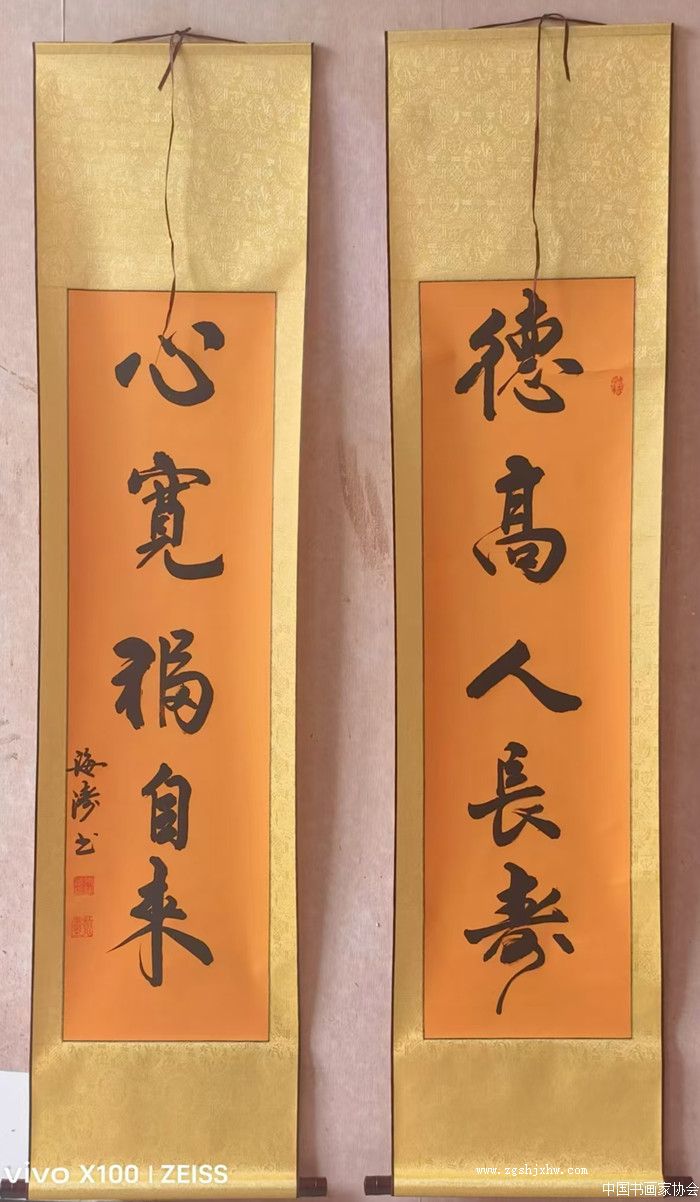 德高人長壽
心寬福自来
海濤书
vivo X100 | ZEISS
www.zgshjxhw.com
中国书画家协会